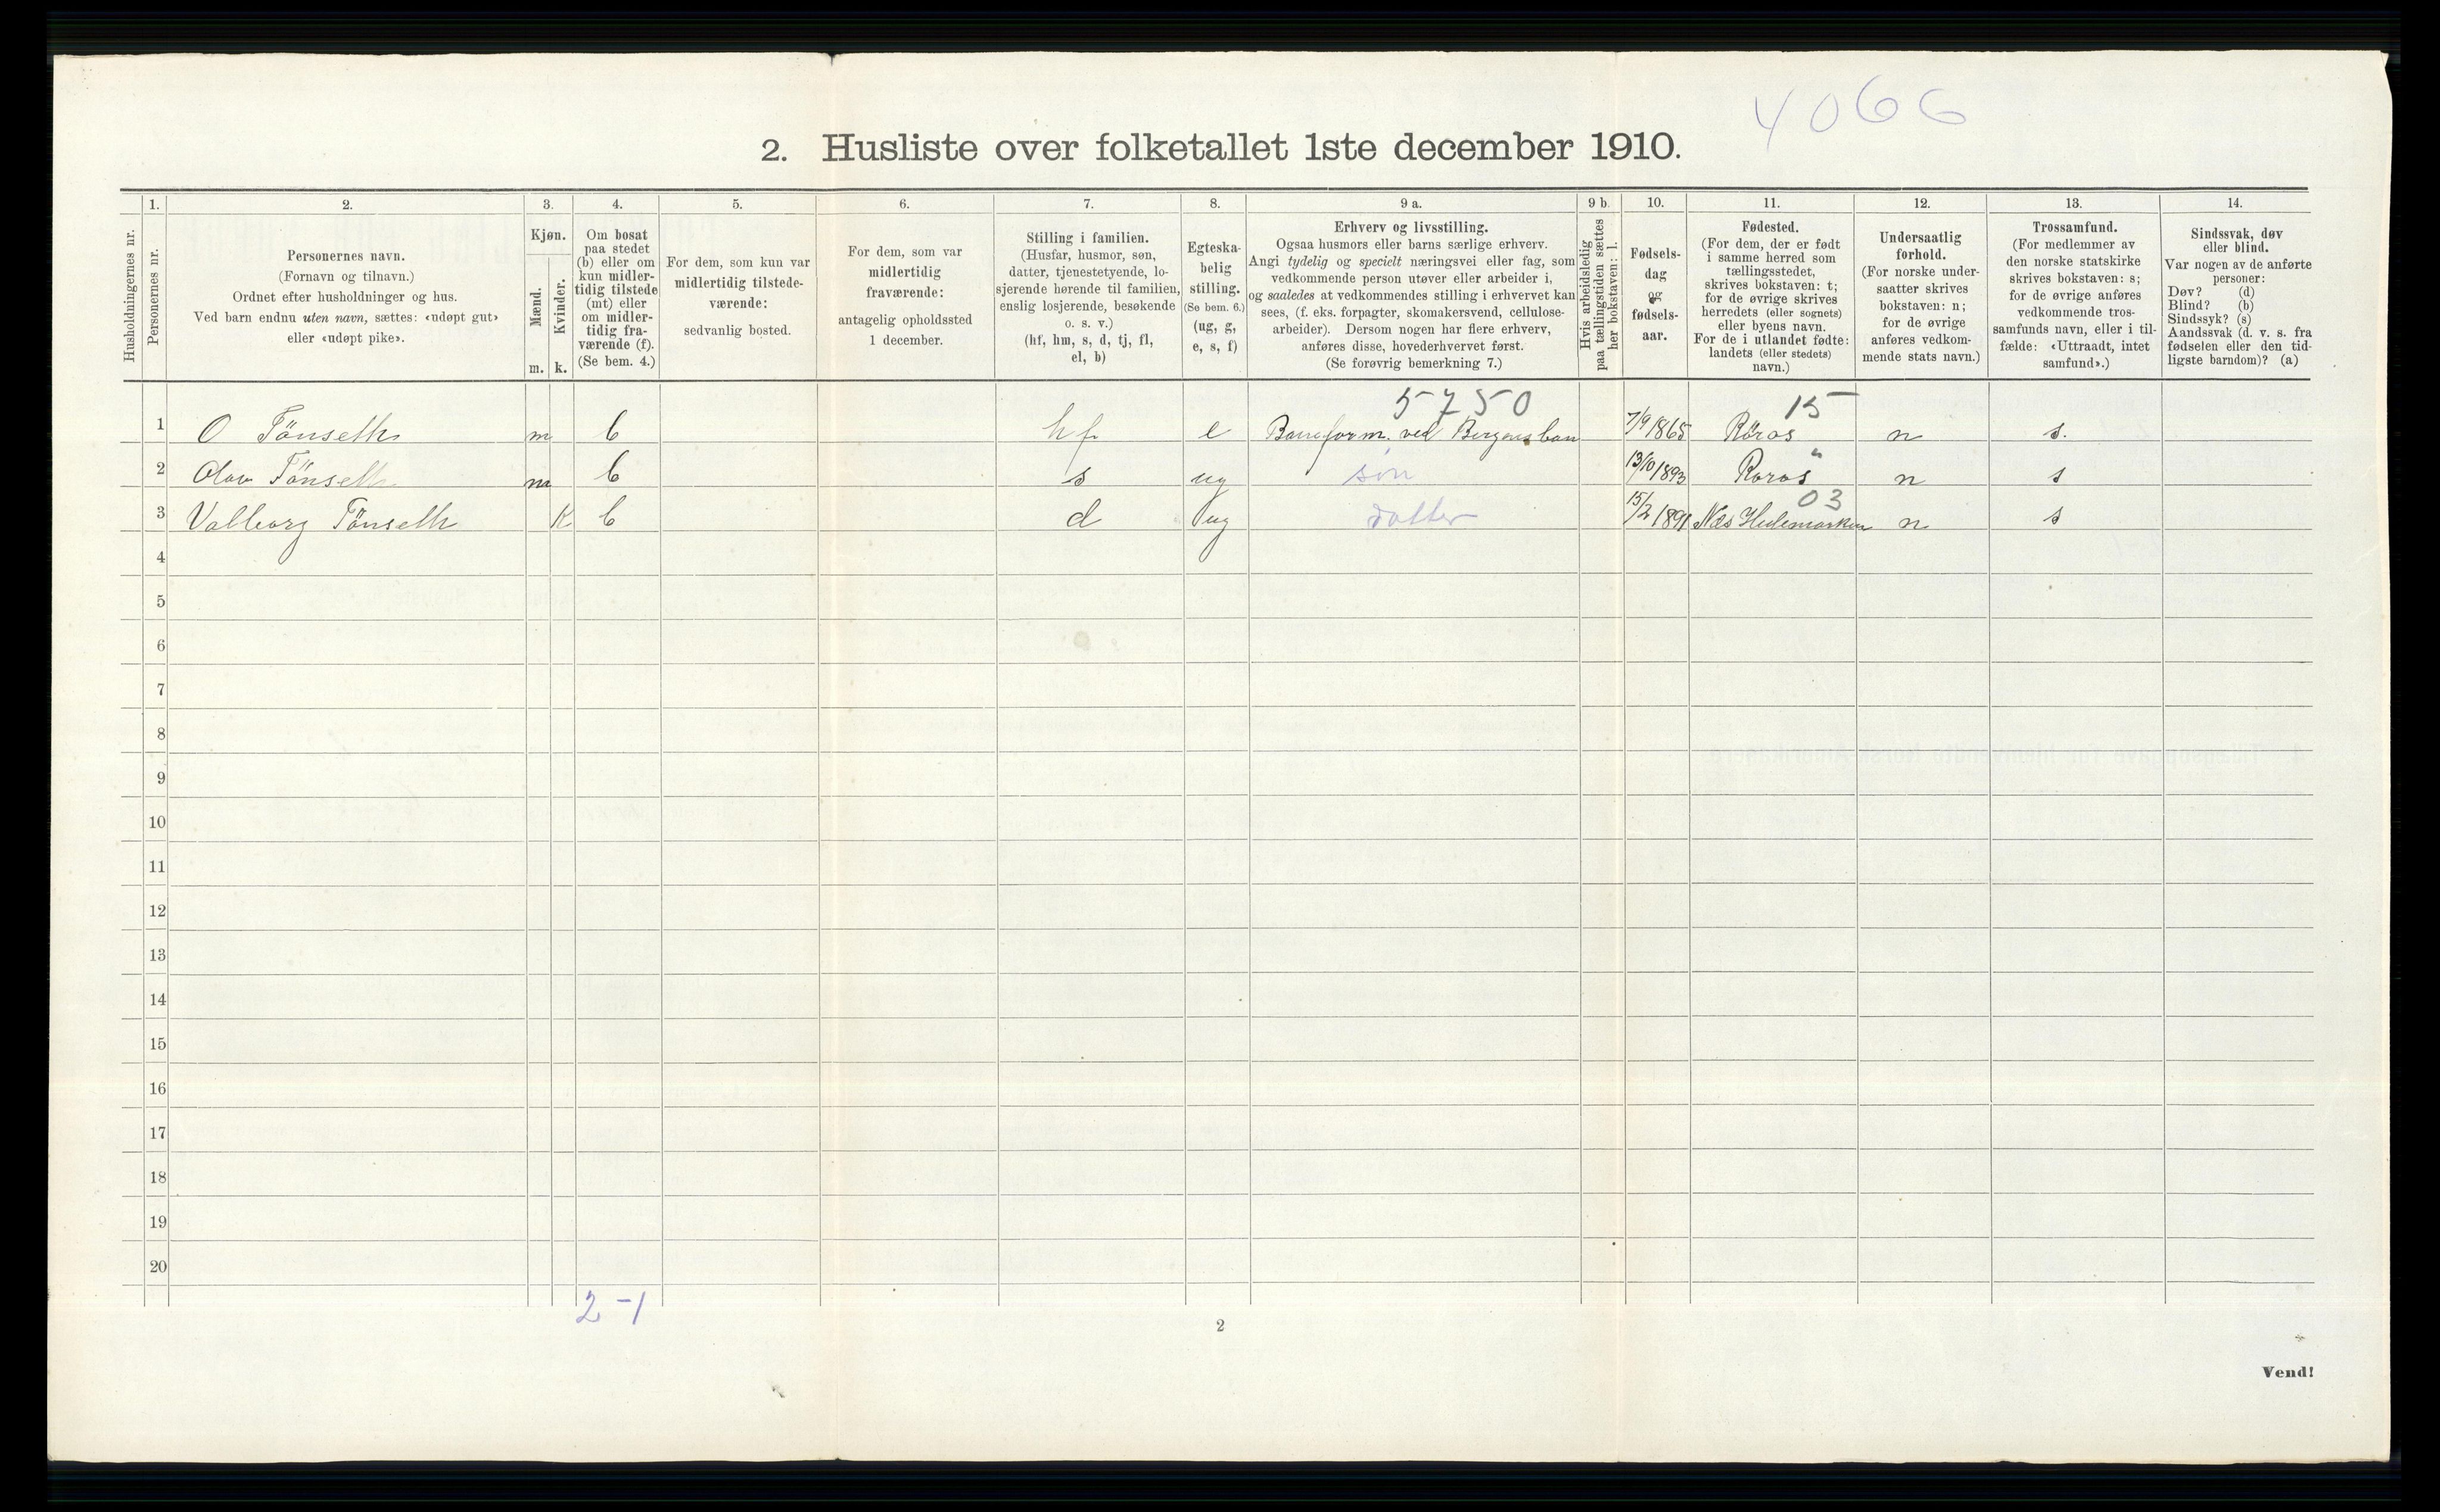 4066
2. Husliste over folketallet 1ste december 1910.
Husholdningernes nr.
1. Personernes nr.
2. Personernes navn.
(Fornavn og tilnavn.)
Ordnet efter husholdninger og hus.
Ved barn endnu uten navn, sættes: «udøpt gut»
eller «udøpt pike».
3. Kjøn.
Mænd. Kvinder.
m. k.
4. Om bosat
paa stedet
(b) eller om
kun midler-
tidig tilstede
(mt) eller
om midler-
tidig fra-
værende (f).
(Se bem. 4.)
5. For dem, som kun var
midlertidig tilstede-
værende:
sedvanlig bosted.
6. For dem, som var
midlertidig
fraværende:
antagelig opholdssted
1 december.
7. Stilling i familien.
(Husfar, husmor, søn,
datter, tjenestetyende, lo-
sjerende hørende til familien,
enslig losjerende, besøkende
o. s. v.)
(hf, hm, s, d, tj, fl,
el, b)
8. Egteska-
belig
stilling.
(Se bem. 6.)
(ug, g,
e, s, f)
9 a. Erhverv og livsstilling.
Ogsaa husmors eller barns særlige erhverv.
Angi tydelig og specielt næringsvei eller fag, som
vedkommende person utøver eller arbeider i,
og saaledes at vedkommendes stilling i erhvervet kan
sees, (f. eks. forpagter, skomakersvend, cellulose-
arbeider). Dersom nogen har flere erhverv,
anføres disse, hovederhvervet først.
(Se forøvrig bemerkning 7.)
9 b. Hvis arbeidsledig
paa tællingstiden sættes
her bokstaven: l.
10. Fødsels-
dag
og
fødsels-
aar.
11. Fødested.
(For dem, der er født
i samme herred som
tællingsstedet,
skrives bokstaven: t;
for de øvrige skrives
herredets (eller sognets)
eller byens navn.
For de i utlandet fødte:
landets (eller stedets)
navn.)
12. Undersaatlig
forhold.
(For norske under-
saatter skrives
bokstaven: n;
for de øvrige
anføres vedkom-
mende stats navn.)
13. Trossamfund.
(For medlemmer av
den norske statskirke
skrives bokstaven: s;
for de øvrige anføres
vedkommende tros-
samfunds navn, eller i til-
fælde: «Uttraadt, intet
samfund».)
14. Sindssvak, døv
eller blind.
Var nogen av de anførte
personer:
Døv? (d)
Blind? (b)
Sindssyk? (s)
Aandssvak (d. v. s. fra
fødselen eller den tid-
ligste barndom)? (a)
5750 15
1 O Tönseth m b hf e Baneform. ved Bergensban 7/9 1865 Röros n s.
"
2 Olav Tönseth m b s ug søn 13/10 1893 Roros n s
03
3 Valborg Tönseth K b d ug datter 15/2 1891 Næs Hedemarken n s
4
5
6
7
8
9
10
11
12
13
14
15
16
17
18
19
20
2 - 1
2
Vend!